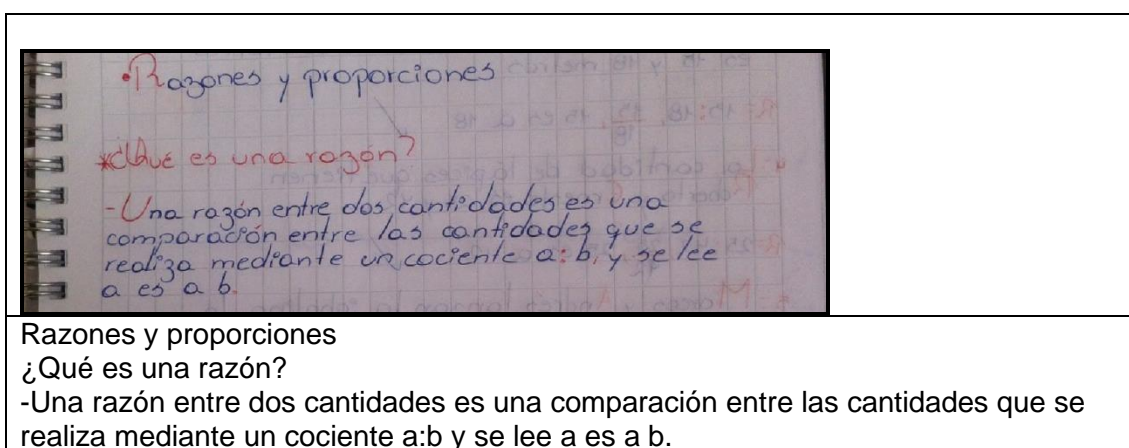 •Razones y proporciones
*¿Qué es una razón?
-Una razón entre dos cantidades es una
comparación entre las cantidades que se
realiza mediante un cociente a:b, y se lee
a es a b.
Razones y proporciones
¿Qué es una razón?
-Una razón entre dos cantidades es una comparación entre las cantidades que se
realiza mediante un cociente a:b y se lee a es a b.